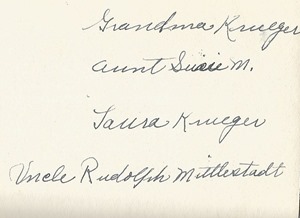 Grandma Krueger
Aunt Susie M.
Laura Krueger
Uncle Rudolph Mittlestadt